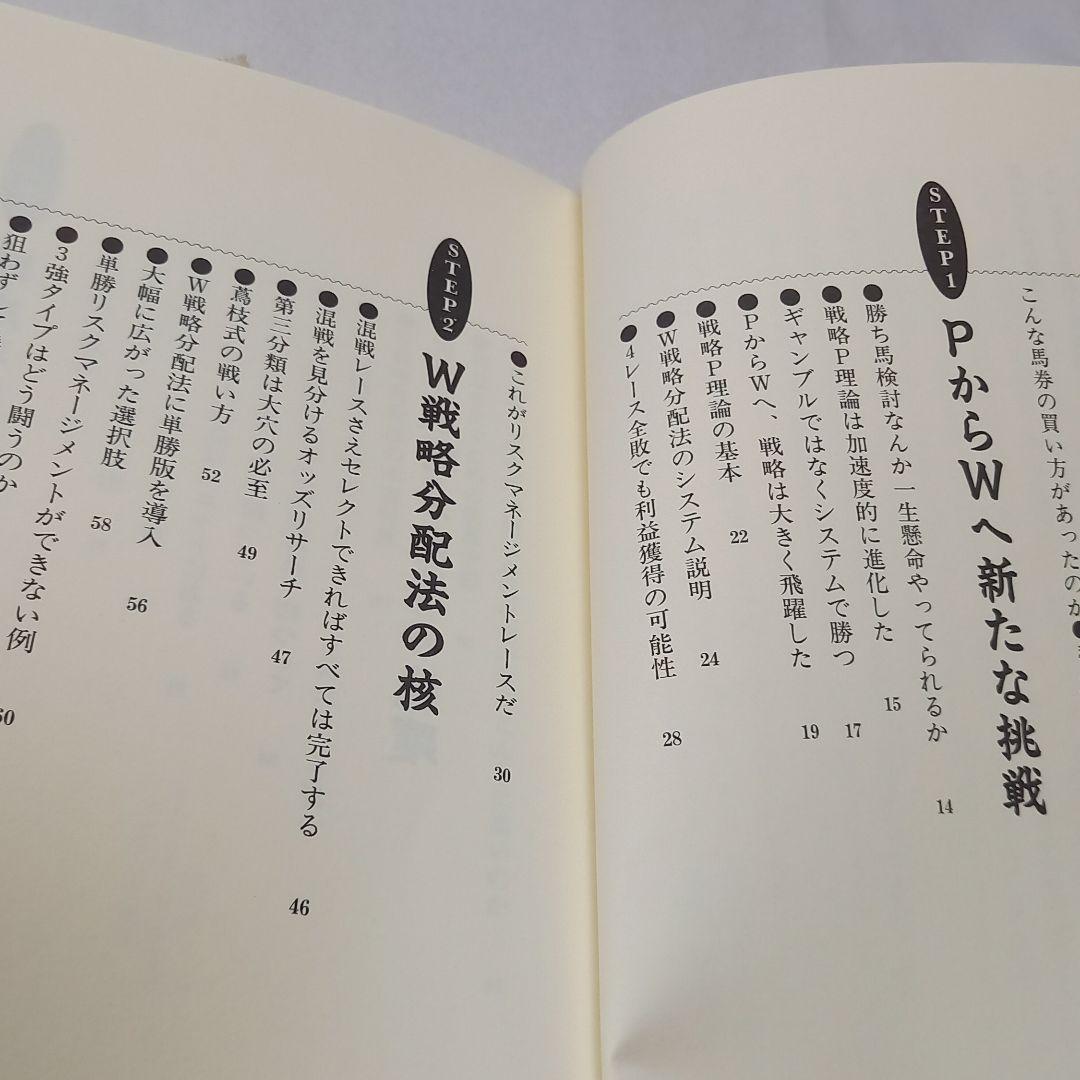 こんな馬券の買い方があったのか
STEP1
PからWへ新たな挑戦
●勝ち馬検討なんか一生懸命やってられるか 14
●戦略P理論は加速度的に進化した 15
●ギャンブルではなくシステムで勝つ 17
●PからWへ、戦略は大きく飛躍した 19
●戦略P理論の基本 22
●W戦略分配法のシステム説明 24
●4レース全敗でも利益獲得の可能性 28
●これがリスクマネージメントレースだ 30
STEP2
W戦略分配法の核
●混戦レースさえセレクトできればすべては完了する 46
●混戦を見分けるオッズリサーチ 47
●第三分類は大穴の必至 49
●蔦枝式の戦い方 52
●W戦略分配法に単勝版を導入 56
●大幅に広がった選択肢 58
●単勝リスクマネージメントができない例 60
●3強タイプはどう闘うのか
●狙わずして